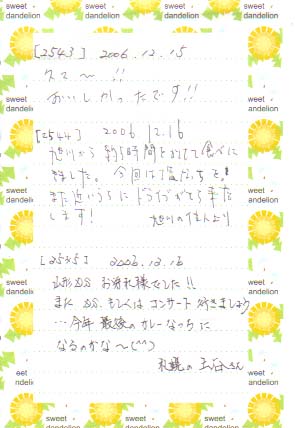 sweet dandelion
sweet dandelion
sweet dandelion
[2543] 2006.12.15
おいしかったです!!
[2544] 2006 12.16
旭川から約3時間をかけて食べに
来ました。今回は塩だったぞ。
また近いうちにドライブがてら来店
します! 旭川の住人より
[2545] 2006.12.16
山形SS お疲れ様でした!!
また SS、もしくは コンサート 行きましょう
…今年 最後の カレーなっちに
なるのかな〜(^^)
札幌の さん
sweet dandelion
sweet dandelion
sweet dandelion